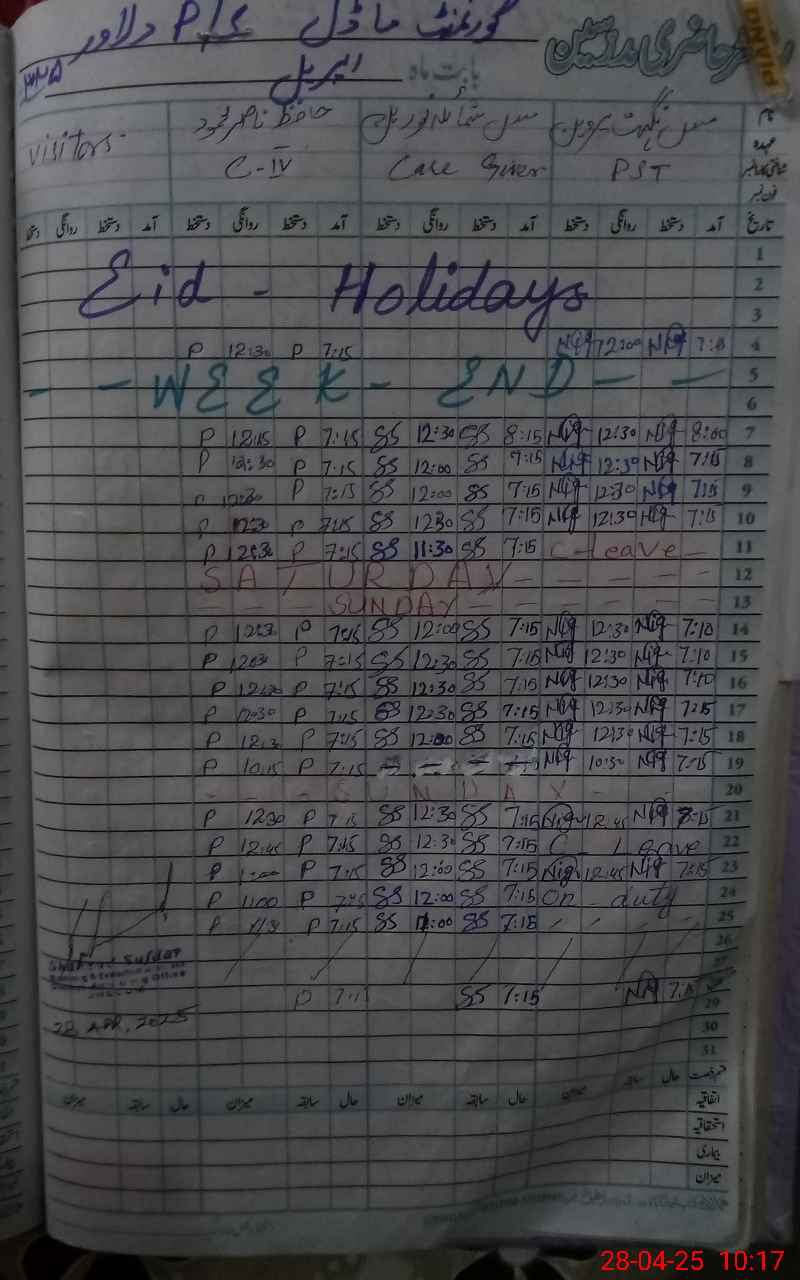 گورنمنٹ ماڈل P/S دلاور
دفتر حاضری مدرسین
بابت ماہ اپریل
visitors. حافظ ناصر محمود مس شمائلہ نورین مس نگہت پروین نام
عہدہ
C-IV Care Giver PST
تاریخ آمد دستخط روانگی دستخط آمد دستخط روانگی دستخط آمد دستخط روانگی دستخط آمد دستخط روانگی دستخط
1
Eid - Holidays 2
3
P 12:30 P 7:15 Nig 12:00 Nig 7:15 4
- - WEEK - END - - 5
6
P 12:15 P 7:15 SS 12:30 SS 8:15 Nig 12:30 Nig 8:00 7
P 12:30 P 7:15 SS 12:00 SS 7:15 Nig 12:30 Nig 7:15 8
P 12:30 P 7:15 SS 12:00 SS 7:15 Nig 12:30 Nig 7:15 9
P 12:30 P 7:15 SS 12:30 SS 7:15 Nig 12:30 Nig 7:15 10
P 12:30 P 7:15 SS 11:30 SS 7:15 C-Leave - 11
SATURDAY - - - - - 12
- - - SUNDAY - - - - - - 13
P 12:30 P 7:15 SS 12:00 SS 7:15 Nig 12:30 Nig 7:10 14
P 12:30 P 7:15 SS 12:30 SS 7:15 Nig 12:30 Nig 7:10 15
P 12:30 P 7:15 SS 12:30 SS 7:15 Nig 12:30 Nig 7:10 16
P 12:30 P 7:15 SS 12:30 SS 7:15 Nig 12:30 Nig 7:15 17
P 12:30 P 7:15 SS 12:00 SS 7:15 Nig 12:30 Nig 7:15 18
P 10:15 P 7:15 - - - - Nig 10:30 Nig 7:15 19
- - - SUNDAY - - - 20
P 12:30 P 7:15 SS 12:30 SS 7:15 Nig 12:45 Nig 7:15 21
P 12:45 P 7:15 SS 12:30 SS 7:15 C - Leave 22
P 1:00 P 7:15 SS 12:00 SS 7:15 Nig 12:45 Nig 7:15 23
P 1:00 P 7:15 SS 12:00 SS 7:15 On - duty 24
P P 7:15 SS 12:00 SS 7:15 - - - - 25
26
27
P 7:15 SS 7:15 Nig 7:15 28
29
28 APR. 2025
30
31
میزان سابقہ حال میزان سابقہ حال میزان سابقہ حال میزان سابقہ حال قسم رخصت
اتفاقیہ
استحقاقیہ
بیماری
میزان
28-04-25 10:17